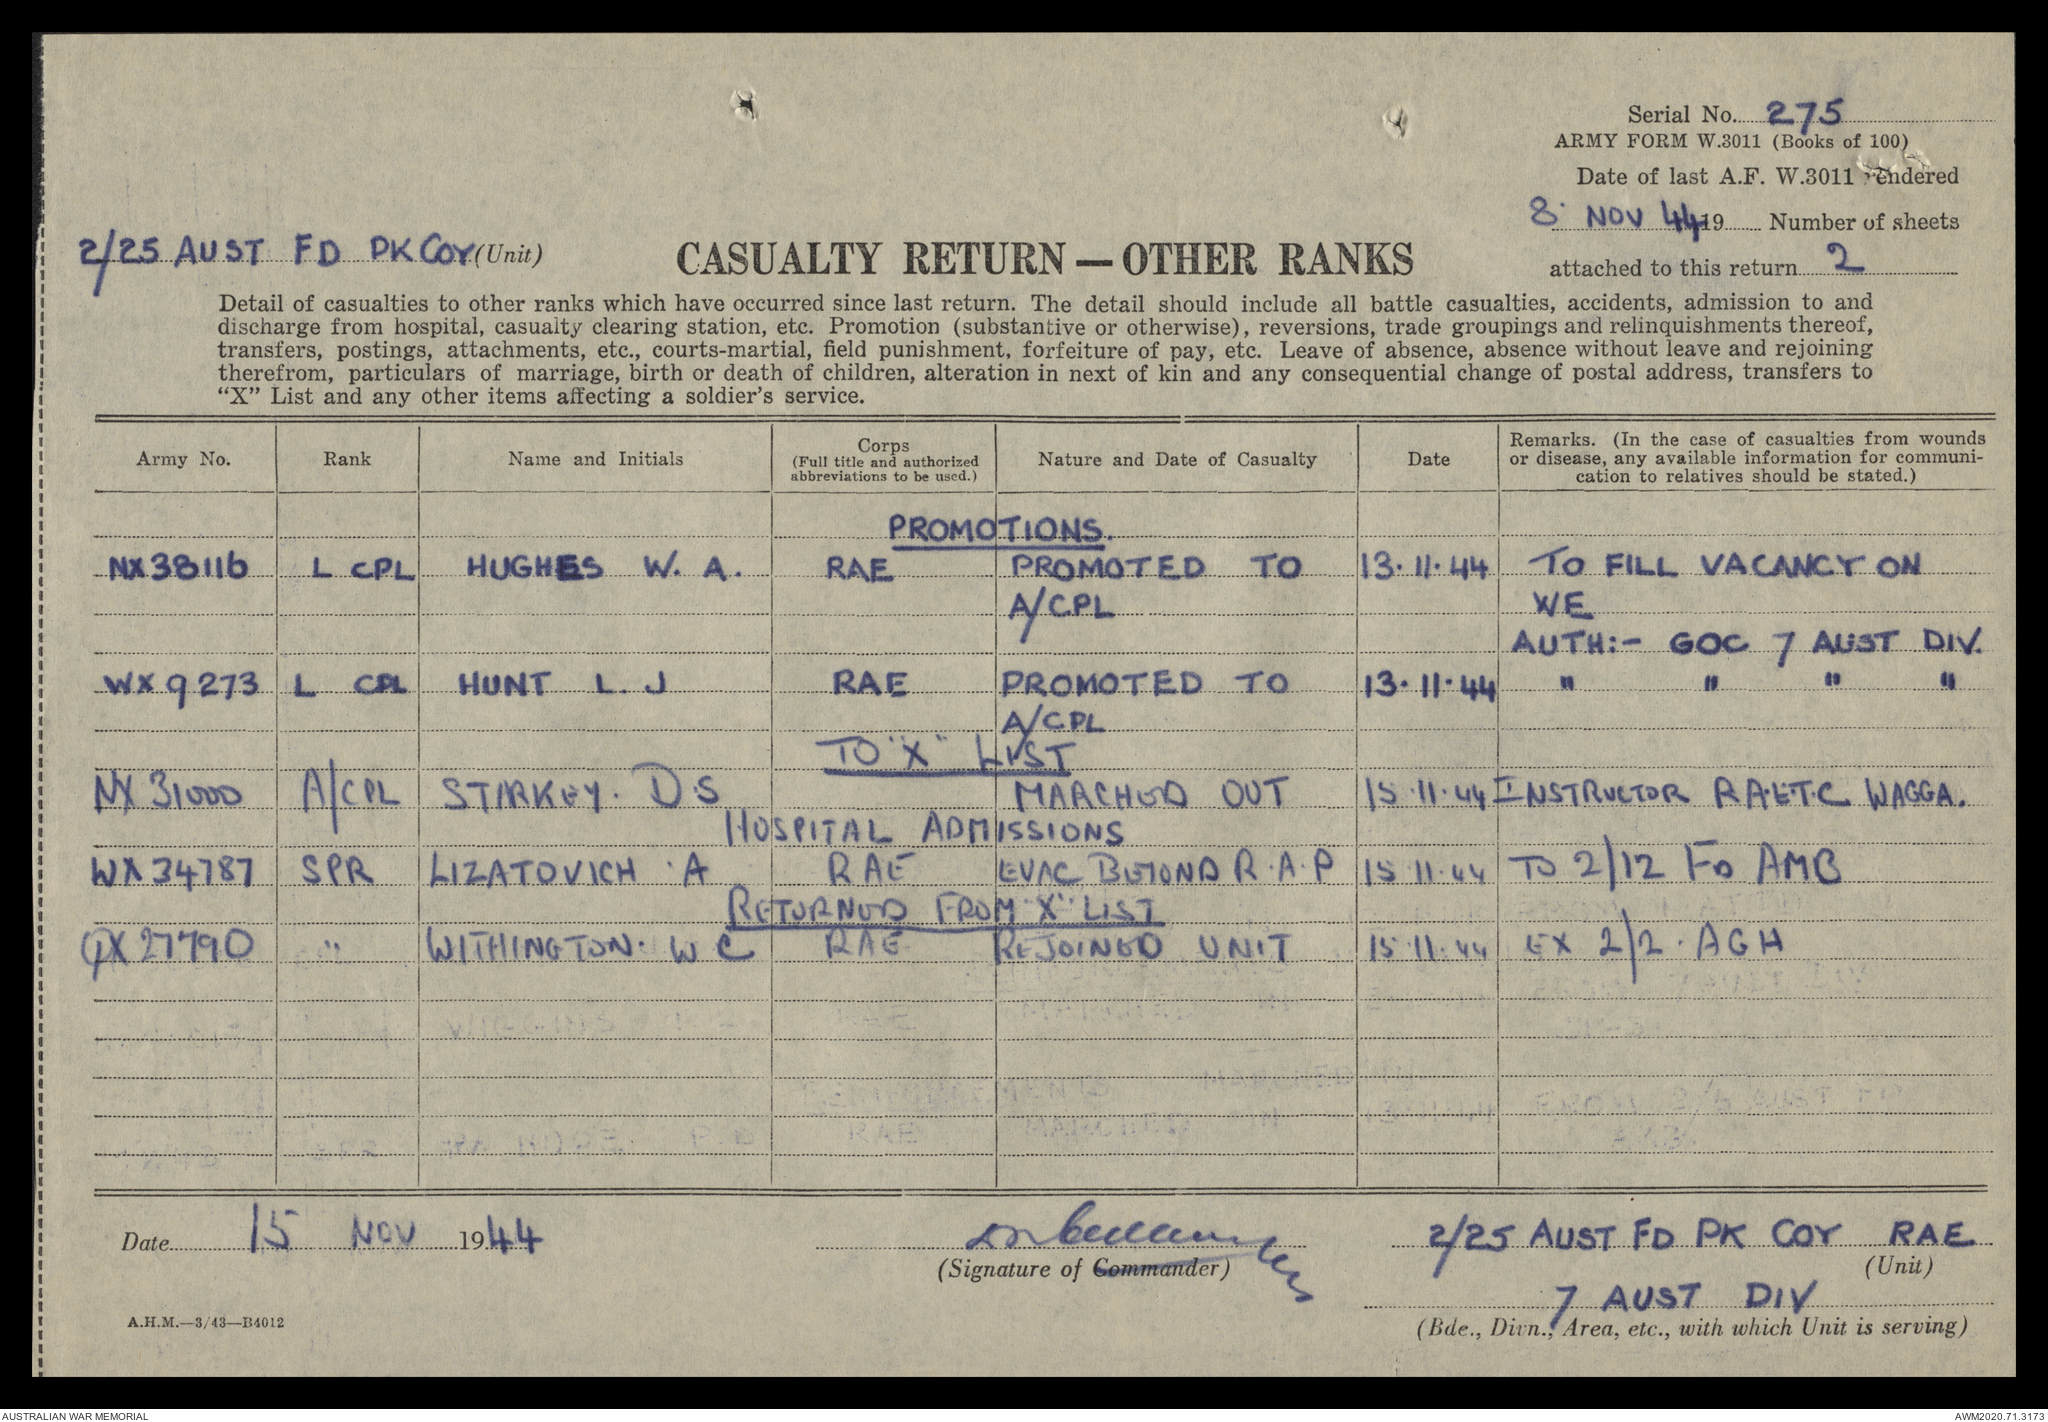 Serial No. 275
ARMY FORM W.3011 (Books of 100)
Date of last A.F. W.3011 rendered
8 NOV 44 19 Number of sheets
attached to this return 2
2/25 AUST FD PK COY (Unit)
CASUALTY RETURN — OTHER RANKS
Detail of casualties to other ranks which have occurred since last return. The detail should include all battle casualties, accidents, admission to and
discharge from hospital, casualty clearing station, etc. Promotion (substantive or otherwise), reversions, trade groupings and relinquishments thereof,
transfers, postings, attachments, etc., courts-martial, field punishment, forfeiture of pay, etc. Leave of absence, absence without leave and rejoining
therefrom, particulars of marriage, birth or death of children, alteration in next of kin and any consequential change of postal address, transfers to
"X" List and any other items affecting a soldier's service.
Army No. Rank Name and Initials Corps (Full title and authorized abbreviations to be used.) Nature and Date of Casualty Date Remarks. (In the case of casualties from wounds or disease, any available information for communication to relatives should be stated.)
PROMOTIONS.
NX38116 L CPL HUGHES W. A. RAE PROMOTED TO 13.11.44 TO FILL VACANCY ON
A/CPL WE
AUTH:- GOC 7 AUST DIV.
WX9273 L CPL HUNT L. J RAE PROMOTED TO 13.11.44 " " " "
A/CPL
TO "X" LIST
NX31000 A/CPL STARKEY. D.S MARCHED OUT 15.11.44 INSTRUCTOR R.A.E.T.C WAGGA.
HOSPITAL ADMISSIONS
WX34787 SPR LIZATOVICH .A RAE EVAC BEYOND R.A.P 15.11.44 TO 2/12 FD AMB
RETURNED FROM "X" LIST
QX27790 " WITHINGTON. W C RAE REJOINED UNIT 15.11.44 EX 2/2. AGH
Date 15 NOV 1944
(Signature of Commander)
2/25 AUST FD PK COY RAE
(Unit)
7 AUST DIV
(Bde., Divn., Area, etc., with which Unit is serving)
A.H.M.—3/43—B4012
AUSTRALIAN WAR MEMORIAL
AWM2020.71.3173